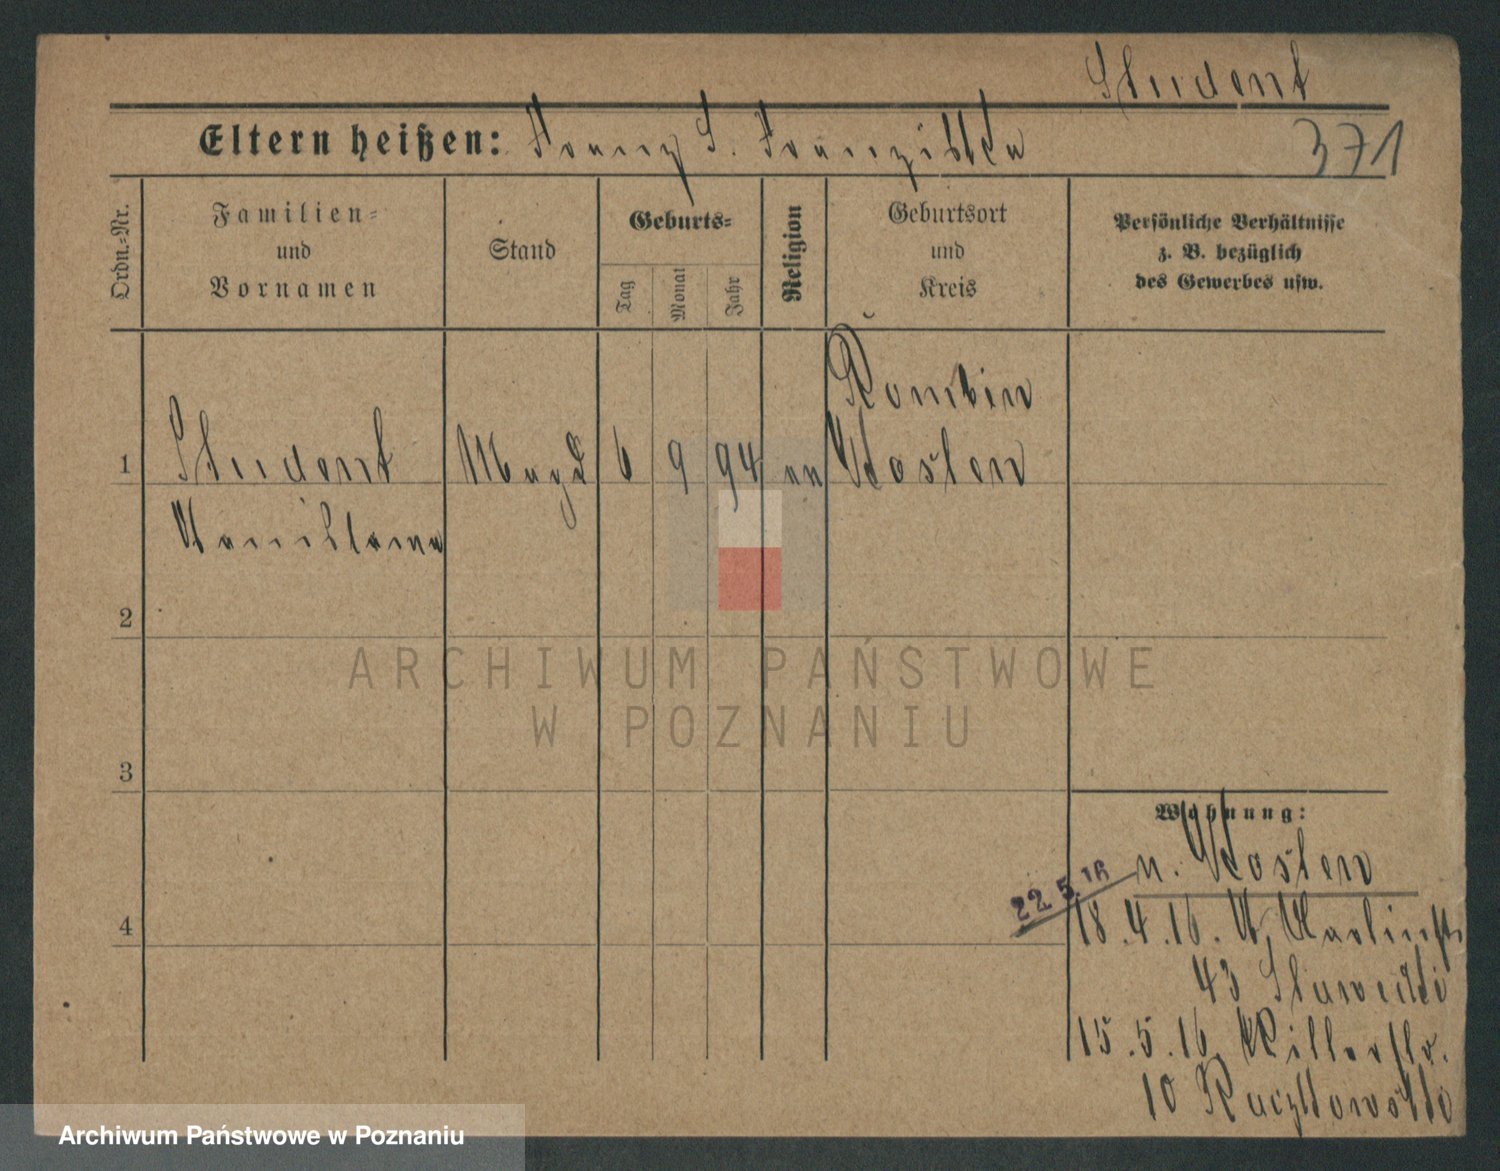 Student
Eltern heißen: Franz S. Franziska
371
Ordn.=Nr.
Familien=
und
Vornamen
Stand
Geburts=
Tag
Monat
Jahr
Religion
Geburtsort
und
Kreis
Persönliche Verhältnisse
z. B. bezüglich
des Gewerbes usw.
1
Student
Magd
6 9 94
Kosten
2
3
4
ARCHIWUM PAŃSTWOWE
W POZNANIU
Wohnung:
n. Kosten
22.5.16
18.4.16.
43
15.5.16. Ritterstr.
10
Archiwum Państwowe w Poznaniu